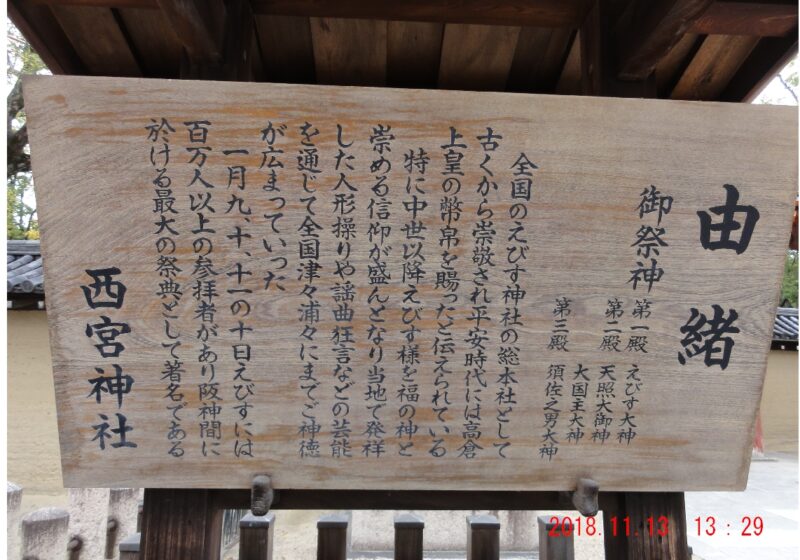 由緒
御祭神
第一殿 えびす大神
第二殿 天照大御神
大国主大神
第三殿 須佐之男大神
全国のえびす神社の総本社として
古くから崇敬され平安時代には高倉
上皇の幣帛を賜ったと伝えられている
特に中世以降えびす様を福の神と
崇める信仰が盛んとなり当地で発祥
した人形操りや謡曲狂言などの芸能
を通じて全国津々浦々にまでご神徳
が広まっていった
一月九、十、十一の十日えびすには
百万人以上の参拝者があり阪神間に
於ける最大の祭典として著名である
西宮神社
2018.11.13 13:29